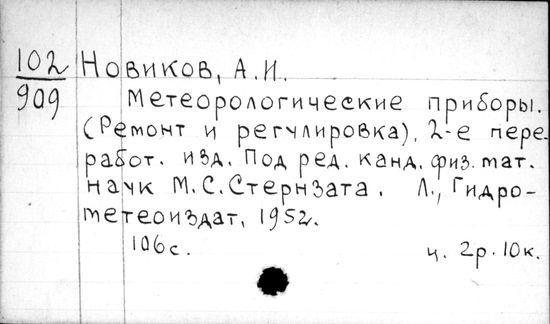 102 Новиков, А.И.
909 Метеорологические приборы.
(Ремонт и регулировка). 2-е пере-
работ. изд. Под ред. канд. физ. мат.
наук М.С.Стернзата. Л., Гидро-
метеоиздат, 1952.
106с. ц. 2р. 10к.